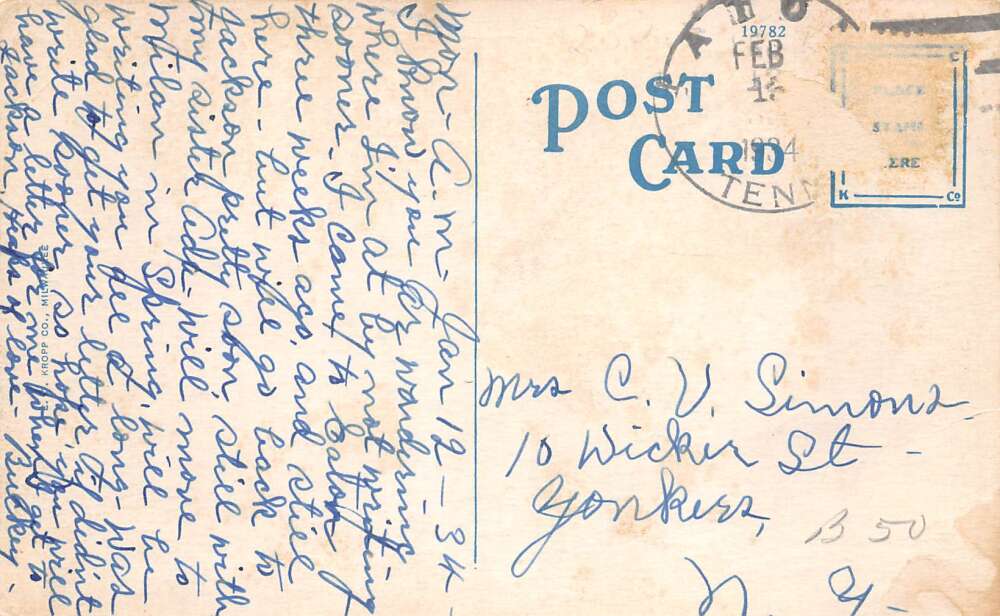 Mon- A.M- Jan 12-34-
I know you are wondering
where I'm at by not writing
sooner- I came to Eaton
three weeks ago, and still
here- but will go back to
Jackson pretty soon, still with
my sister Ada- will move to
Milan in Spring, will be
writing you long- Was
glad to get your letter didn't
write sooner, so hope you will
have letter for me when I get to
Jackson, Heaps of love-
KROPP CO., MILWAUKEE
19782
POST
CARD
FEB
1934
TENN
PLACE
STAMP
HERE
C
K Co
Mrs C. V. Simons
10 Wicker St-
Yonkers,
N. Y-
B 50